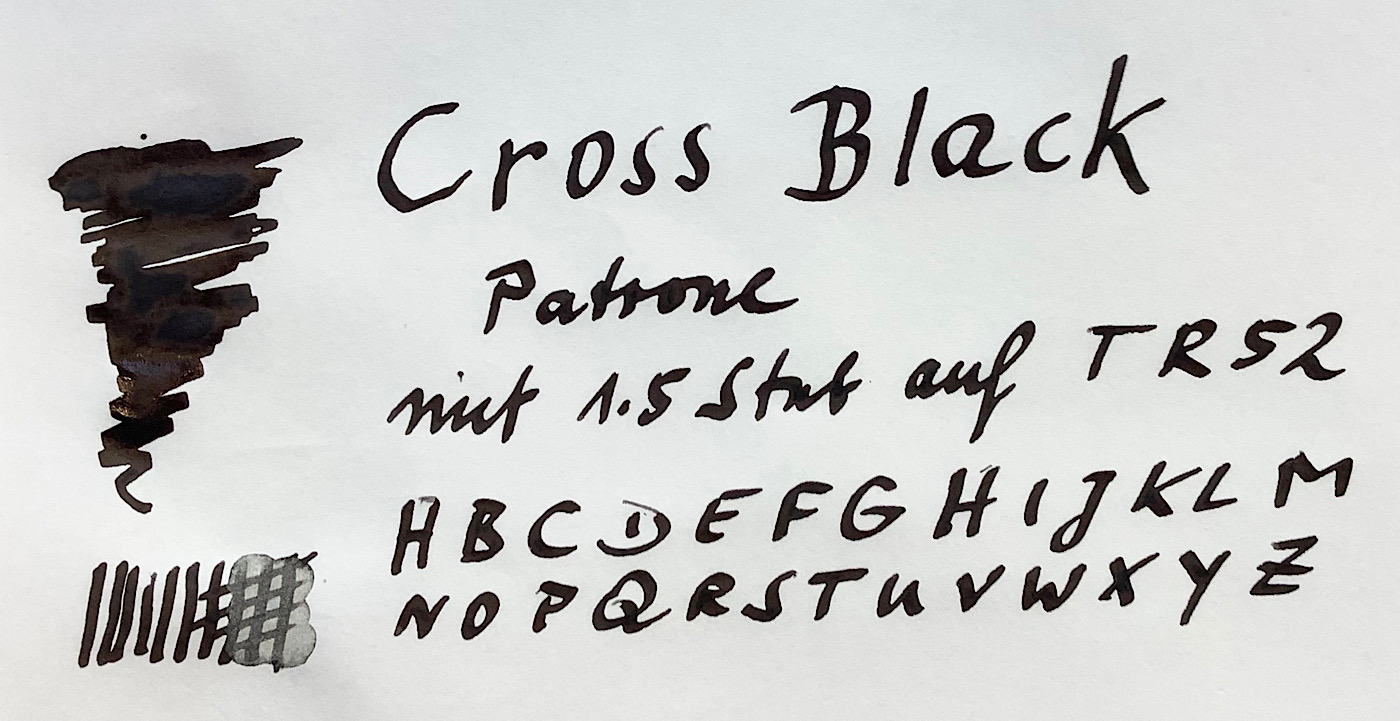 Cross Black
Patrone
mit 1.5 Stub auf TR52
A B C D E F G H I J K L M
N O P Q R S T U V W X Y Z